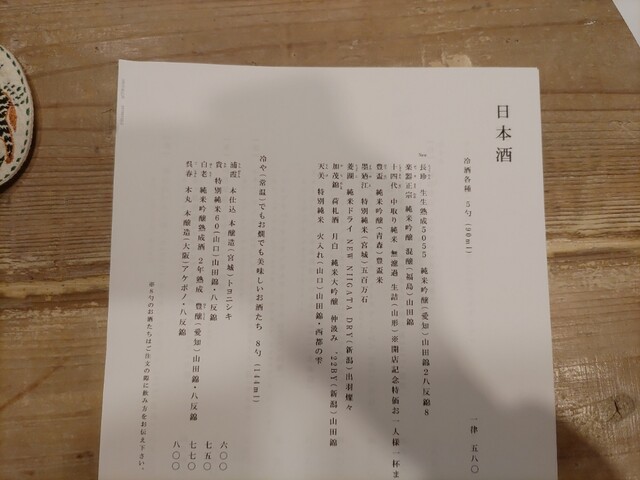 日本酒
冷酒各種 5勺(90ml) 一律 五八〇
長珍 生生熟成5055 純米吟醸(愛知)山田錦2八反錦8
楽器正宗 純米吟醸 混醸(福島)山田錦
十四代 中取り純米 無濾過 生詰(山形)※開店記念特価お一人様一杯ま
豊盃 純米吟醸(青森)豊盃米
墨廼江 特別純米(宮城)五百万石
菱湖 純米ドライ NEW NIIGATA DRY(新潟)出羽燦々
加茂錦 荷札酒 月白 純米大吟醸 仲汲み '22BY(新潟)山田錦
天美 特別純米 火入れ(山口)山田錦・西都の雫
冷や(常温)でもお燗でも美味しいお酒たち 8勺(144ml)
浦霞 本仕込 本醸造(宮城)トヨニシキ 六〇〇
貴 特別純米60(山口)山田錦・八反錦 七五〇
白老 純米吟醸熟成酒 2年熟成 豊醸(愛知)山田錦・八反錦 七七〇
呉春 本丸 本醸造(大阪)アケボノ・八反錦 八〇〇
※8勺のお酒たちはご注文の際に飲み方をお伝え下さい。